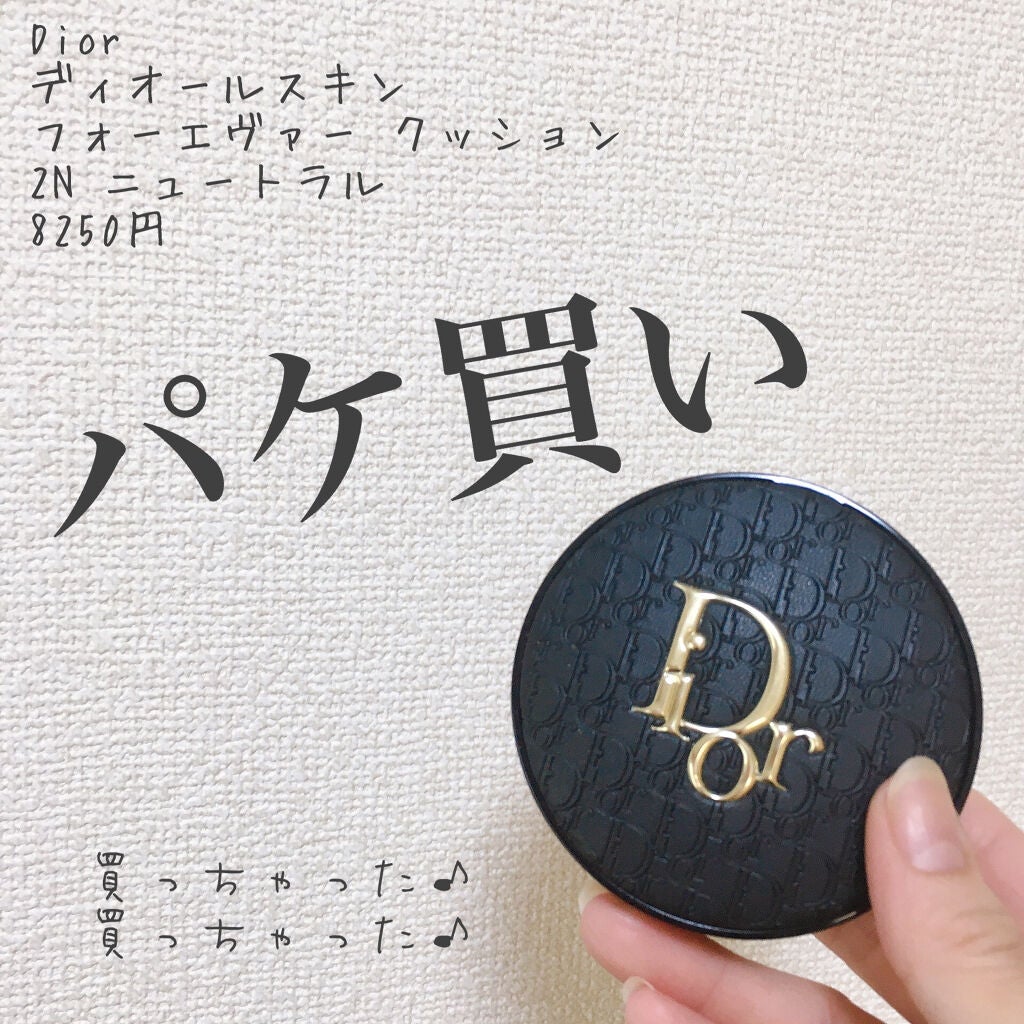 Dior
ディオールスキン
フォーエヴァー クッション
2N ニュートラル
8250円
パケ買い
Dior
買っちゃった♪
買っちゃった♪